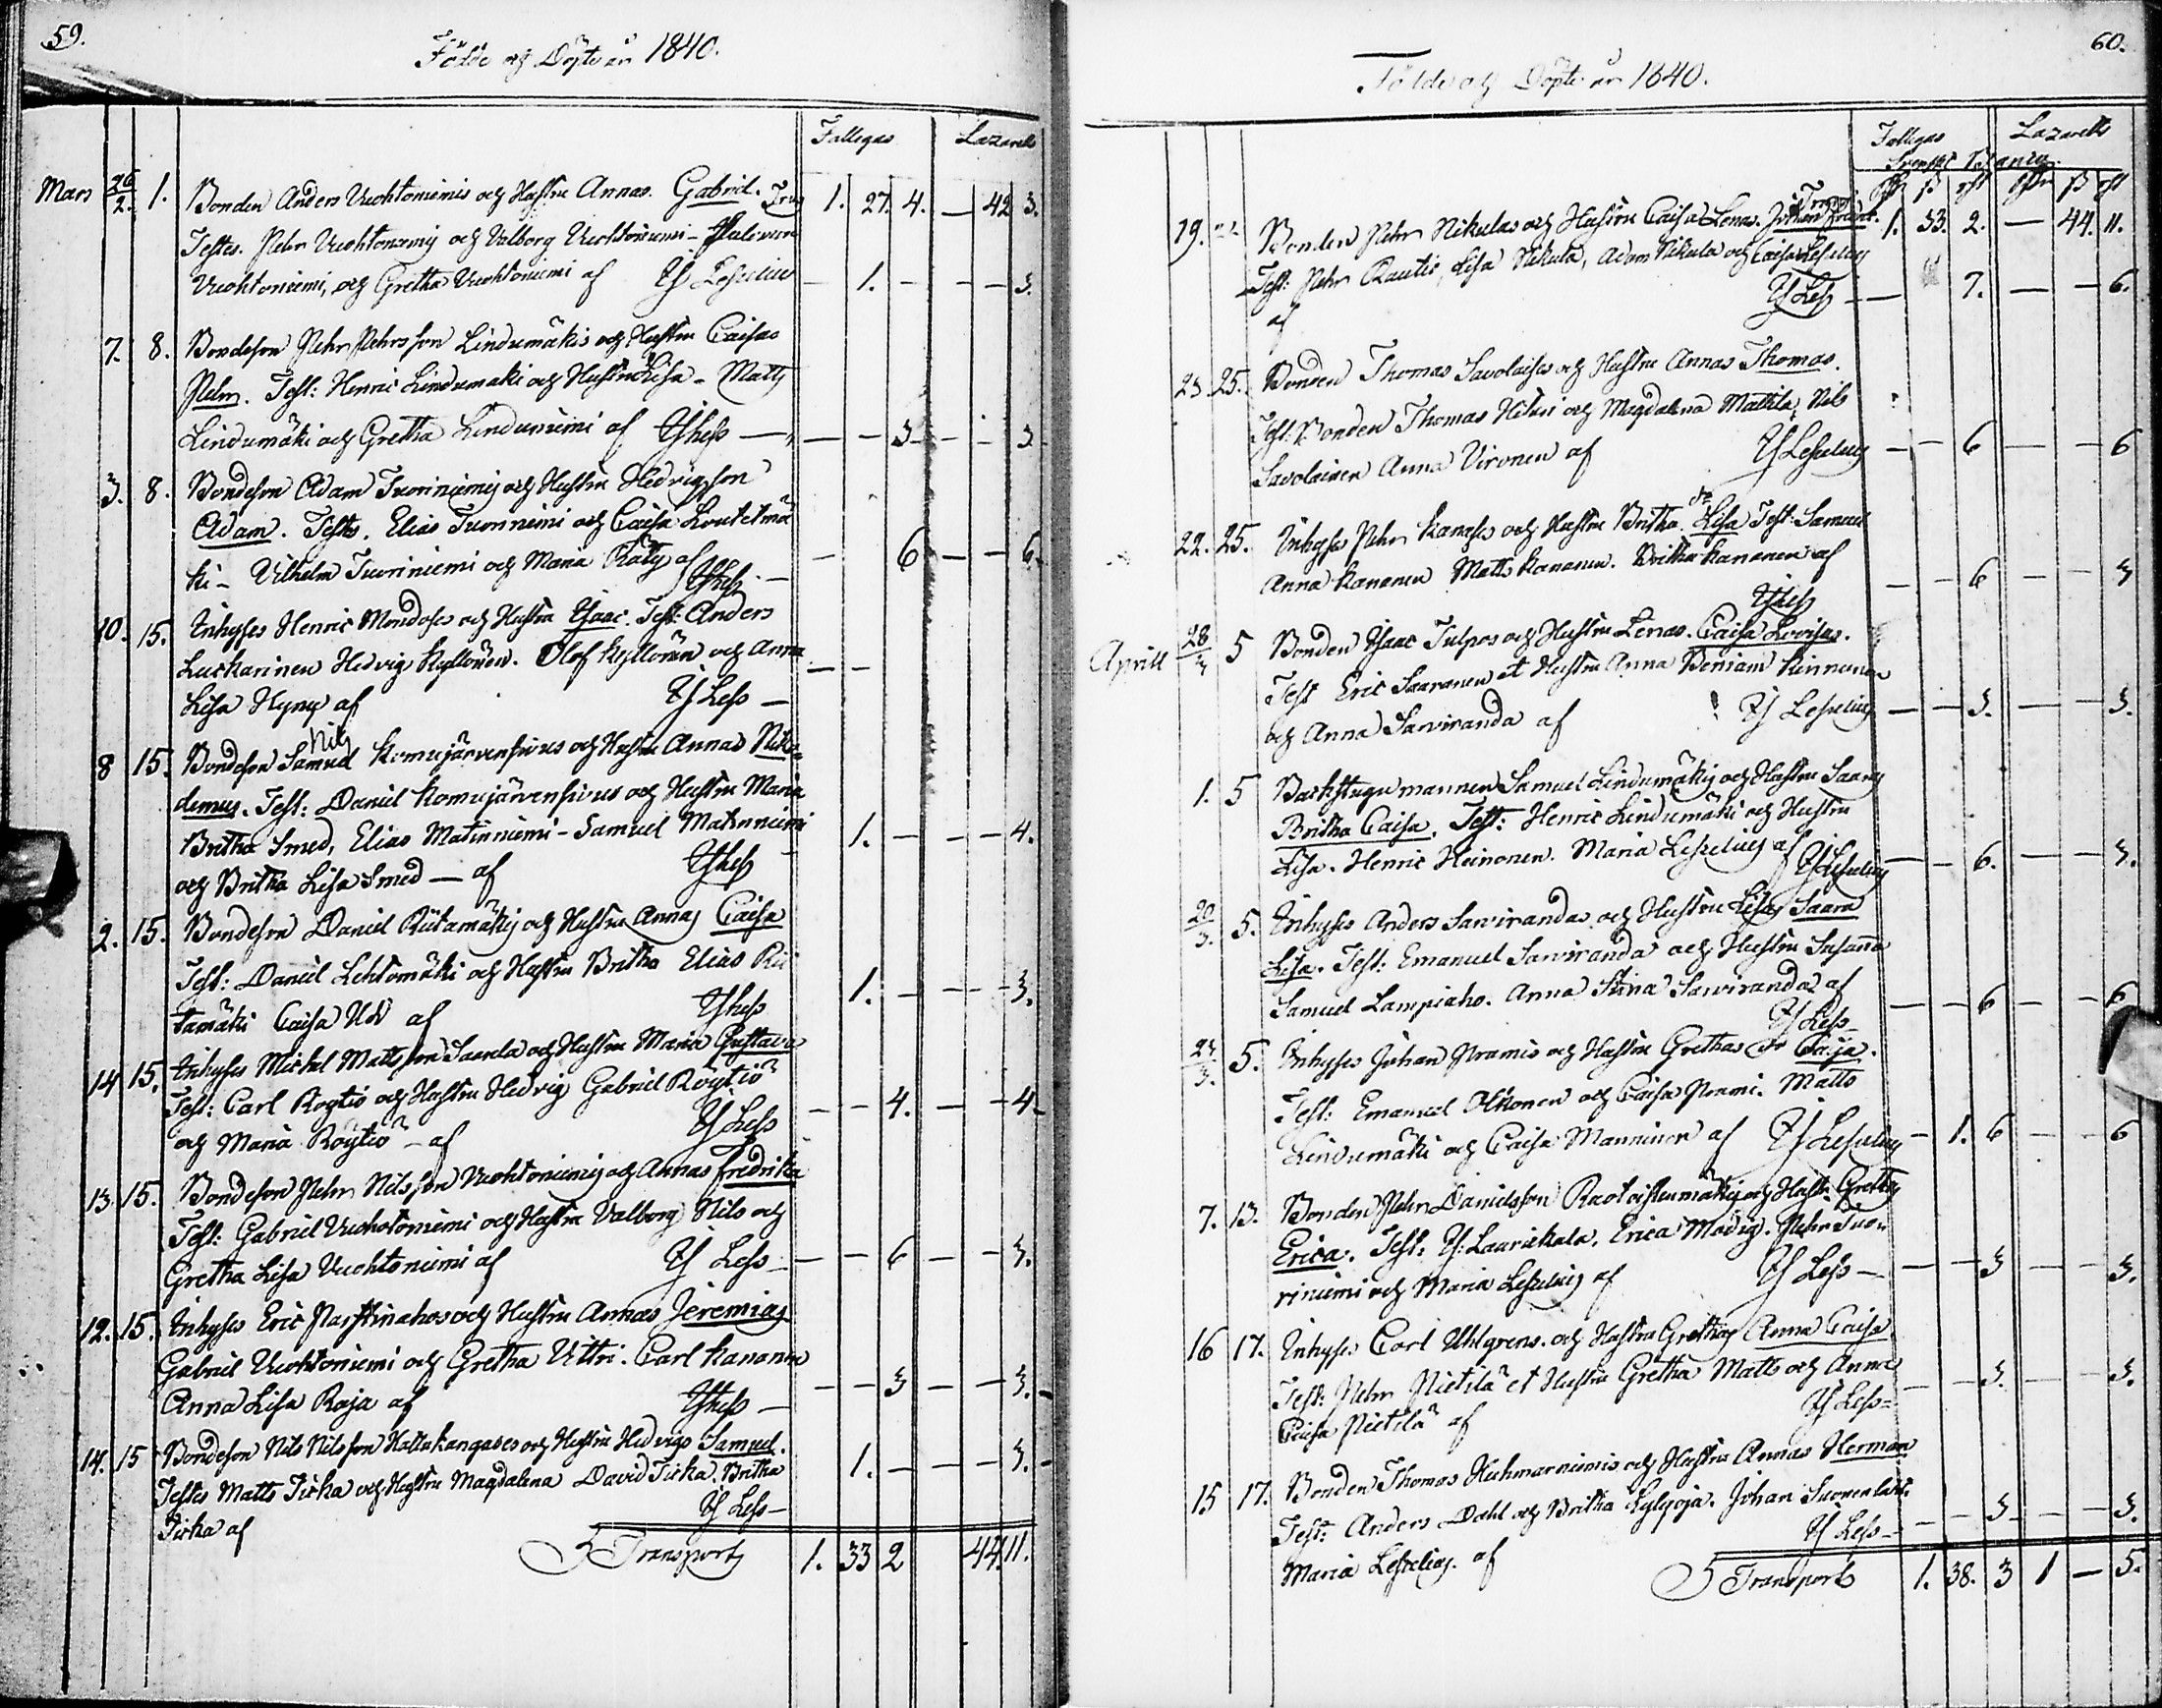 59.
Födde och Döpte år 1840.
Fattigas Lazarets
Mars 26/2. 1. Bonden Anders Vuohtoniemis och Hustru Annas. Gabriel. 1. 27. 4. — 42 3.
Testes. Pehr Vuohtoniemj och Valborg Vuohtoniemi
Vuohtoniemi, och Gretha Vuohtoniemi af — 1. — — — 3.
7. 8. Bondeson Pehr Pehrsson Lindumäkis och Hustru Caisas
Pehr. Test: Henric Lindumäki och Hustru Lisa - Matts
Lindumäki och Gretha Linduniemi af — — 3 — — 3
3. 8. Bondeson Adam Tuoriniemis och Hustru Hedvigs son
Adam. Testes. Elias Tuoriniemi och Caisa Loutetmä
ki - Vilhelm Tuoriniemi och Maria Räty af — 6 — — 6.
10. 15. Inhyses Henric Mondoses och Hustru Isaac. Test: Anders
Luckarinen Hedvig Kyllönen. Olof Kyllönen och Anna
Lisa Hyny af Less —
Nils
8 15. Bondeson Samuel Komujärvensivus och Hustru Annas Niko=
demus. Test: Daniel Komujärvensivus och Hustru Maria
Britha Smed, Elias Matinniemi - Samuel Matinniemi — 1. — — — 4.
och Britha Lisa Smed — af
2. 15. Bondeson Daniel Riitamäkis och Hustru Annas Caisa
Test: Daniel Lehtomäki och Hustru Britha Elias Rii
tamäki Caisa af 1. — — — 3.
14 15. Inhyses Michel Mattsson Saarela och Hustru Maria Gustava
Test: Carl Röytiö och Hustru Hedvig Gabriel Röytiö
och Maria Röytiö - af Less — — 4. — — 4
13. 15. Bondeson Pehr Nilsson Vuohtoniemis och Annas Fredrika
Test: Gabriel Vuohtoniemi och Hustru Valborg Nils och
Gretha Lisa Vuohtoniemi af Less — — 6 — — 3.
12. 15. Inhyses Eric Parstinahos och Hustru Annas Jeremias
Gabriel Vuohtoniemi och Gretha Vittri. Carl Kananen
Anna Lisa Raja af — — 3 — — 3.
14. 15 Bondeson Nils Nilsson Hallakangases och Hustru Hedvigs Samuel.
Testes Matts Tirka och Hustru Magdalena David Tirka. Britha 1. — — — 3.
Tirka af Less —
Transport 1. 33 2 44. 11.
60.
Födde och Döpte år 1840.
Fattigas Lazarets
19. Bonden Pehr Nikulas och Hustru Caisa Lenas. Johan 1. 33. 2. — 44. 11.
Test: Pehr Rautio, Lisa Nikula, Adam Nikula och Caisa Lesselius
af Less — — 7. — — 6.
23. 25. Bonden Thomas Savolaises och Hustru Annas Thomas.
Test: Bonden Thomas och Magdalena Mattila, Nils
Savolainen Anna Vironen af Lesselius — — 6 — — 6
22. 25. Inhyses Pehr Kanases och Hustru Britha Lisa Test: Samuel
Anna Kananen Matts Kananen. Britha Kananen af — — 6 — — 3
Aprill 28/3 5 Bonden Isaac Tulpos och Hustru Lenas. Caisa Lovisa.
Test Eric Saaranen et Hustru Anna Beniam Kinnunen
och Anna Sarviranda af Lesselius — — 3. — — 3.
1. 5 Backstugumannen Samuel Lindumäkis och Hustru Saaras
Britha Caisa. Test: Henric Lindumäki och Hustru
Lisa. Henric Heinonen. Maria Lesselius af Lesselius — — 6. — — 3.
20/3. 5. Inhyses Anders Sarvirandas och Hustru Lisas Saara
Lisa. Test: Emanuel Sarviranda och Hustru Susanna
Samuel Lampiaho. Anna Stina Sarviranda af Less — — 6 — — 6
24/3. 5. Inhyses Johan Pramis och Hustru Grethas Caisa.
Test: Emanuel Olkonen och Caisa Prami. Matts
Lindumäki och Caisa Manninen af Lesselius — 1. 6 — — 6
7. 13. Bonden Pehr Danielsson och Hustr. Grethas
Erica. Test: Laurikala. Erica Modig. Pehr Tuo=
riniemi och Maria Lesselius af Less — — 3 — — 3.
16 17. Inhyses Carl Uhlgrens. och Hustru Grethas Anna Caisa
Test: Pehr Pietilä et Hustru Gretha Matts och Anna
Caisa Pietilä af Less — — 3. — — 3.
15 17. Bonden Thomas Kuhmoniemis och Hustru Annas Herman
Test: Anders Dahl och Britha Kylyoja. Johan
Maria Lesselius. af Less — — 3 — — 3.
Transport 1. 38. 3 1 — 5.